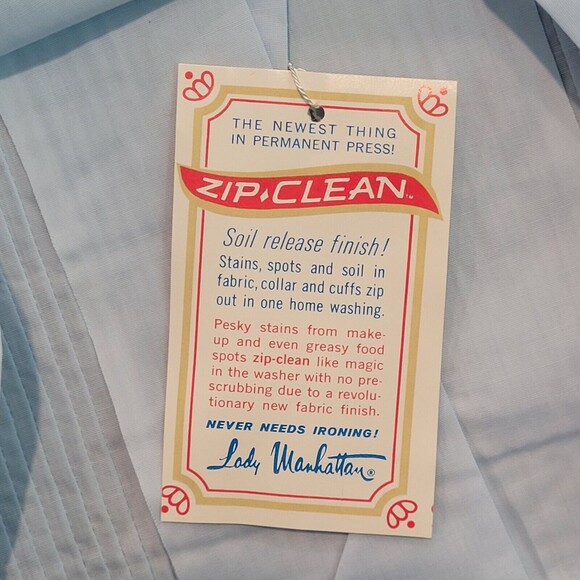 THE NEWEST THING
IN PERMANENT PRESS!
ZIP♦CLEAN™
Soil release finish!
Stains, spots and soil in
fabric, collar and cuffs zip
out in one home washing.
Pesky stains from make-
up and even greasy food
spots zip-clean like magic
in the washer with no pre-
scrubbing due to a revolu-
tionary new fabric finish.
NEVER NEEDS IRONING!
Lady Manhattan®